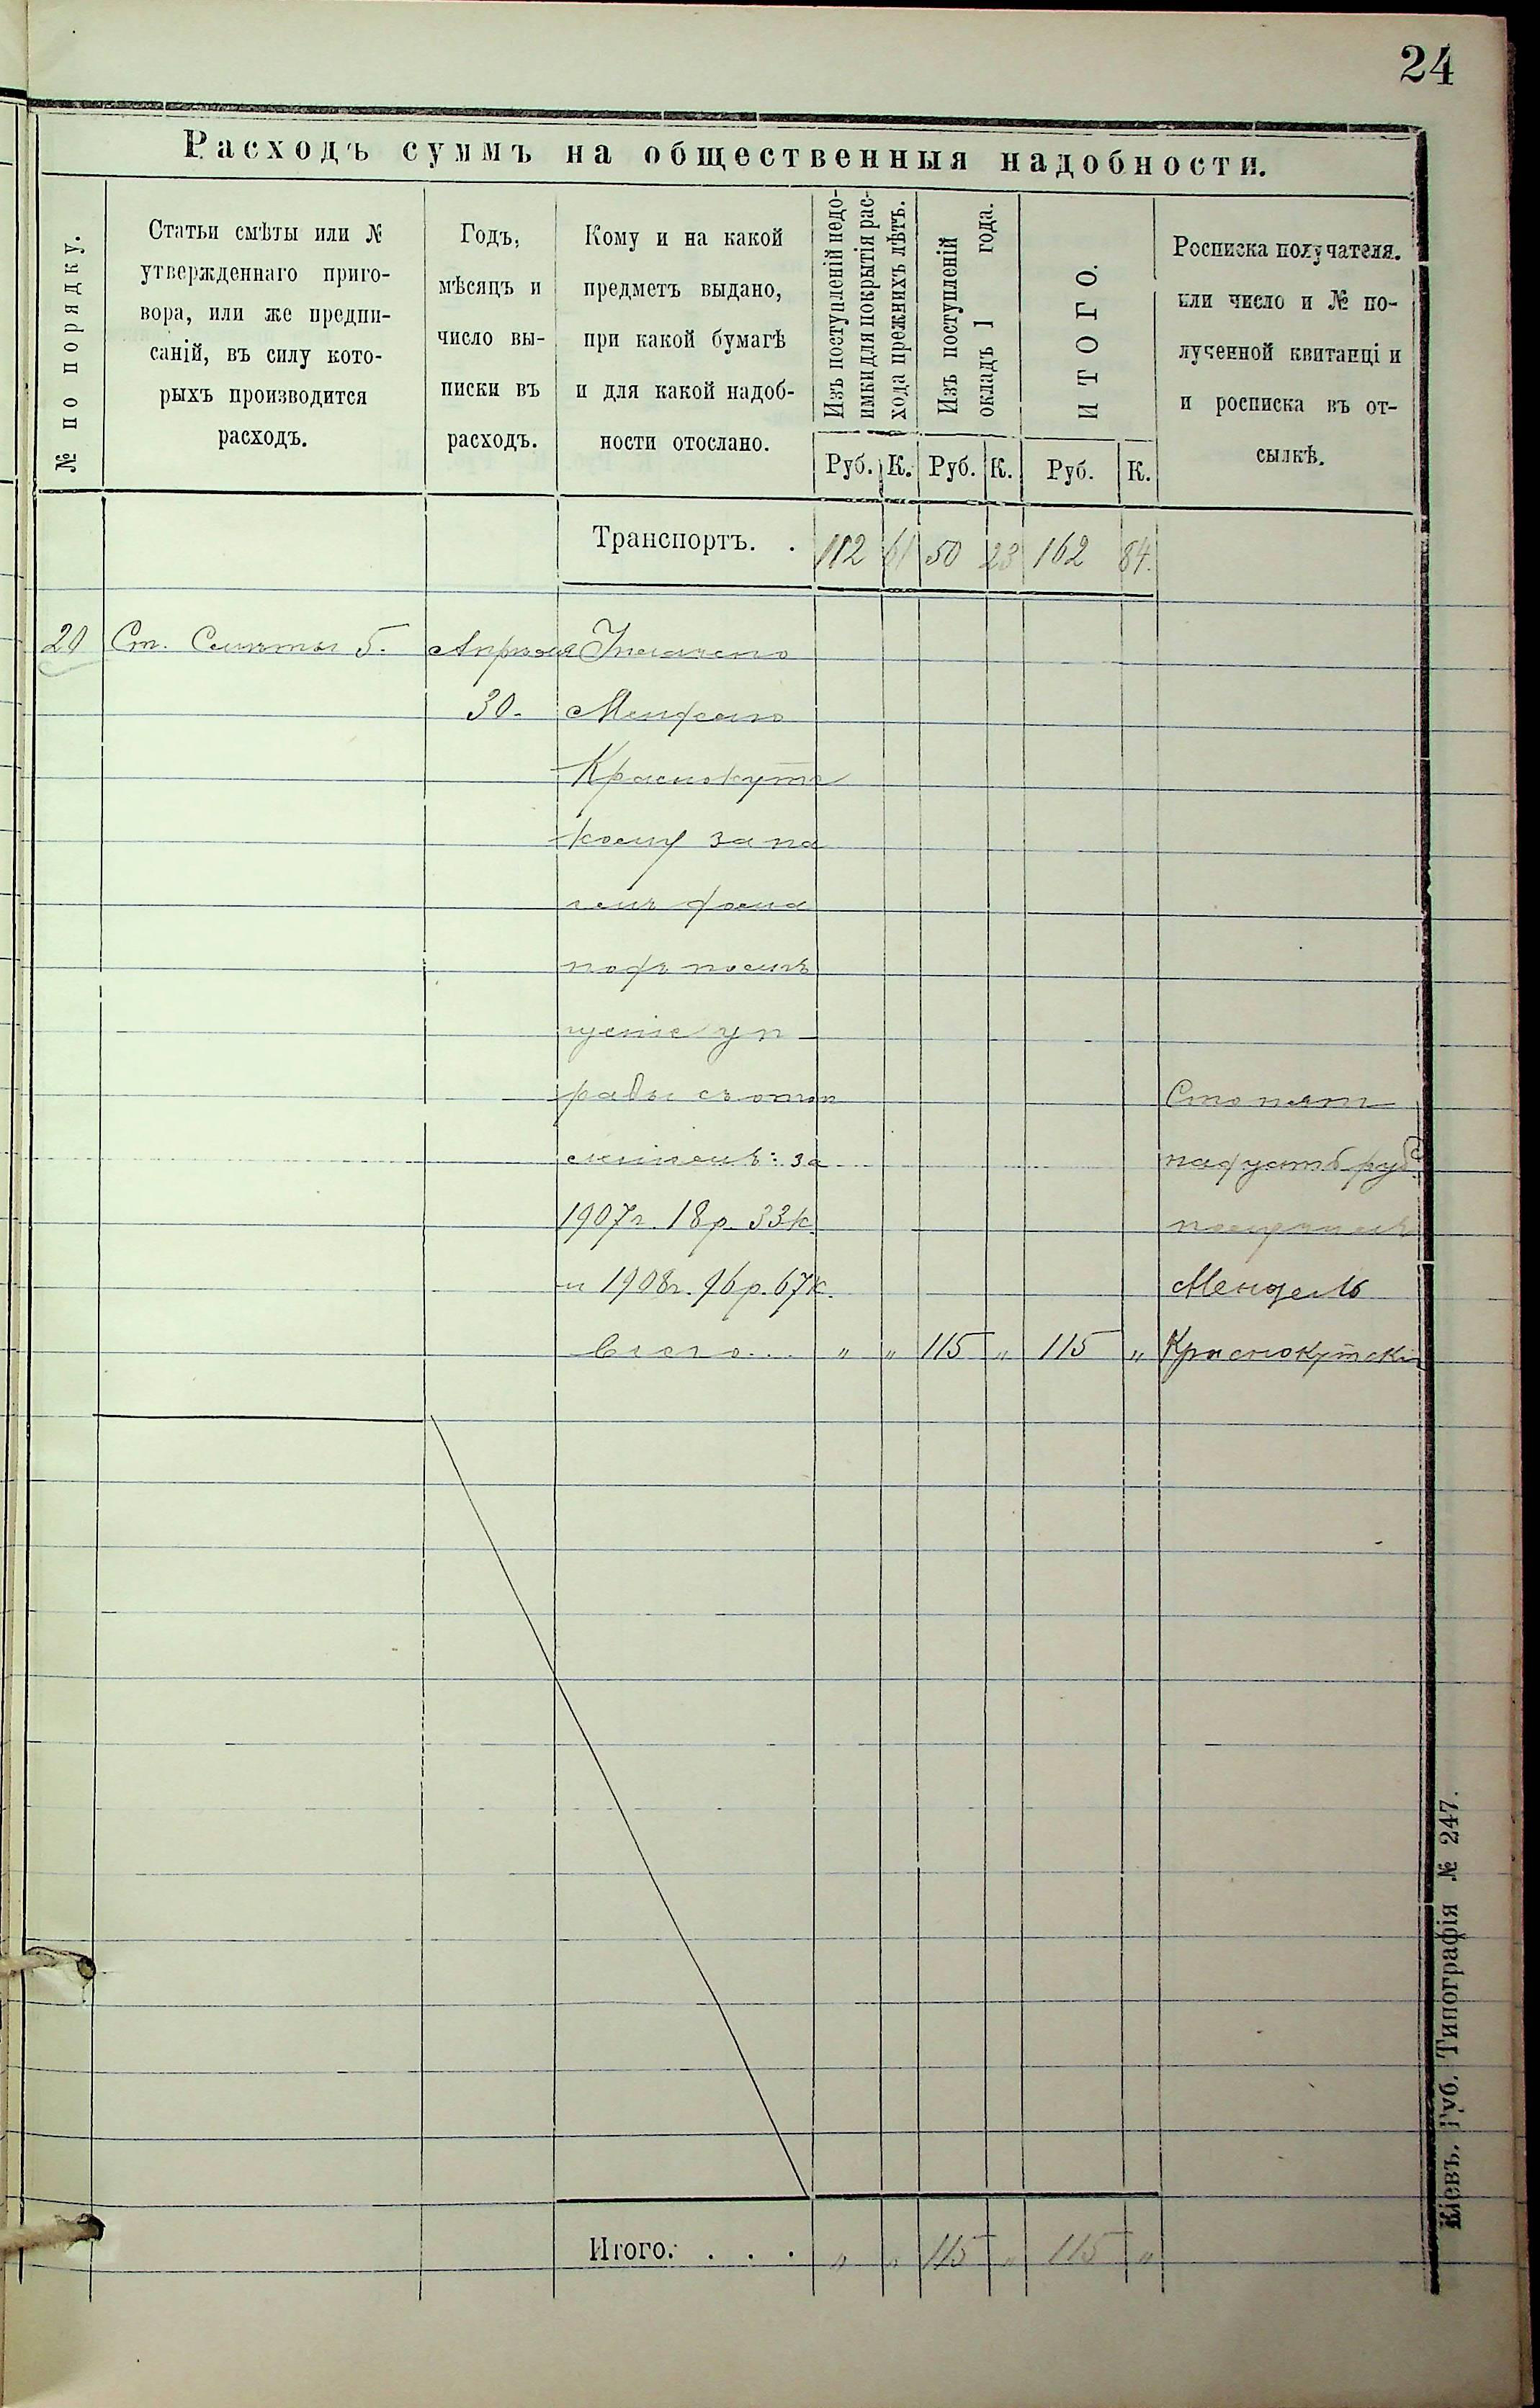 24
Расходъ суммъ на общественныя надобности.
№ по порядку.
Статьи смѣты или №
утвержденнаго приго-
вора, или же предпи-
саній, въ силу кото-
рыхъ производится
расходъ.
Годъ,
мѣсяцъ и
число вы-
писки въ
расходъ.
Кому и на какой
предметъ выдано,
при какой бумагѣ
и для какой надоб-
ности отослано.
Изъ поступленій недо-
имки для покрытія рас-
хода прежнихъ лѣтъ.
Руб. К.
Изъ поступленій
окладъ 1 года.
Руб. К.
ИТОГО.
Руб. К.
Росписка получателя.
или число и № по-
лученной квитанці и
и росписка въ от-
сылкѣ.
Транспортъ. . 112 61 50 23 162 84.
20 Ст. Смѣты 5. Апрѣля Уплачено
30. Менделю
Краснокутс
кому за на
емъ дома
подъ помѣ
щеніе уп
равы съ отоп
леніемъ: за
1907г. 18р. 33к.
и 1908г. 96р. 67к.
Всего... " " 115 " 115 "
Сто пят
надцать руб.
получилъ
Мендель
Краснокутскій
Итого. . . . " " 115 " 115 "
Кіевъ. Губ. Типографія № 247.